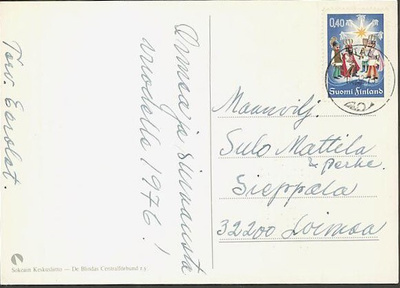 Onnea ja siunausta
vuodelle 1976!
Tov. Eerolat.
Sokeain Keskusliitto — De Blindas Centralförbund r.y.
0,40
Suomi Finland
Maanvilj.
Sulo Mattila
& perhe.
Sieppala
32200 Loimaa